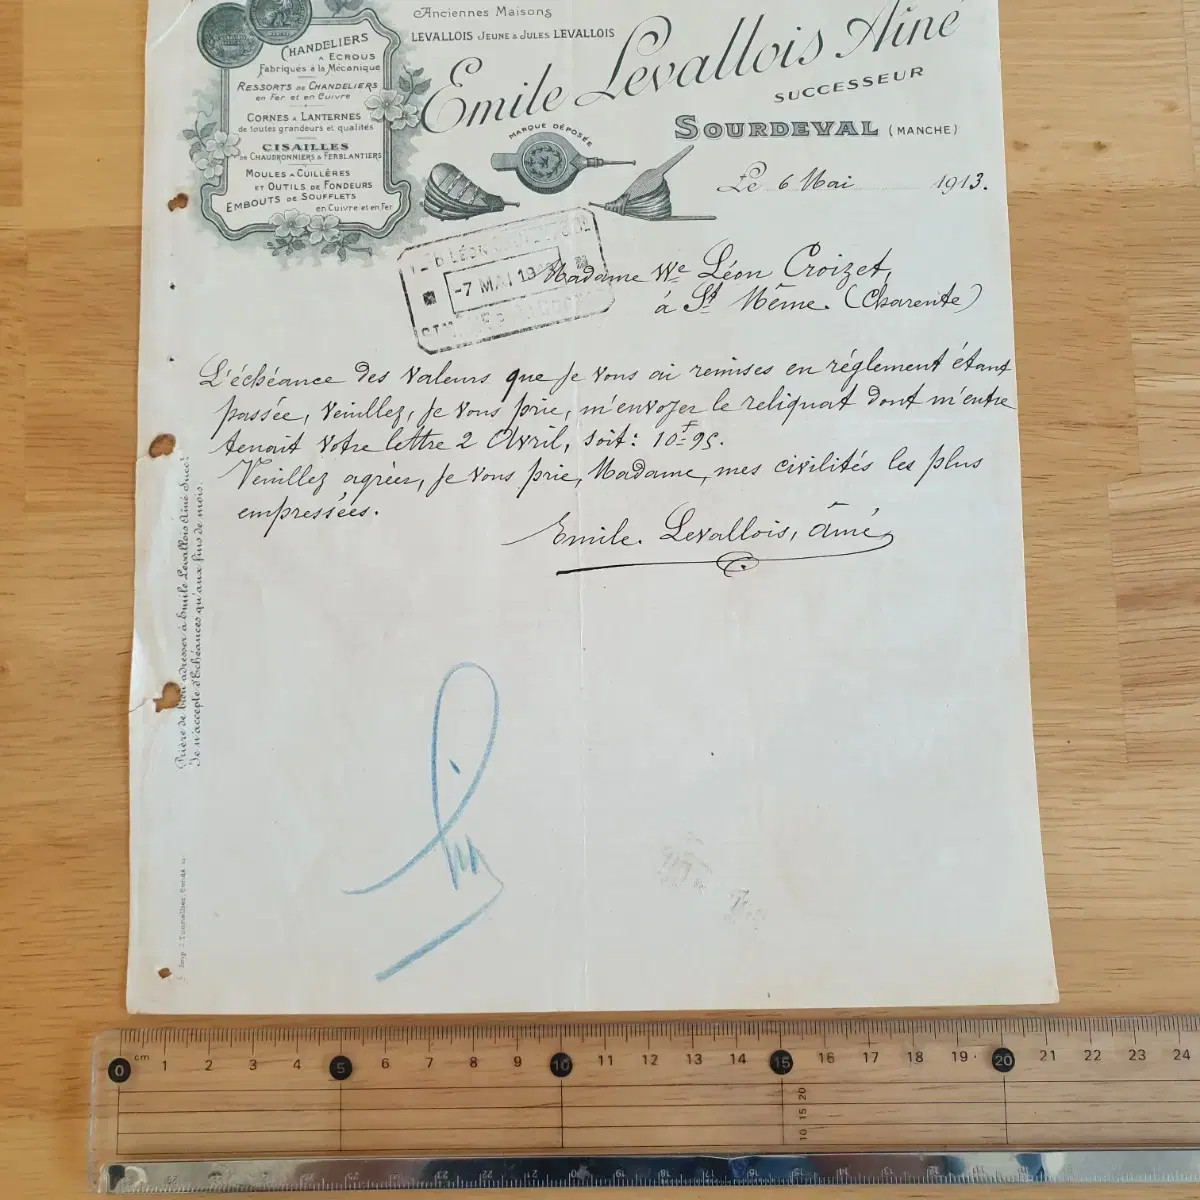 Anciennes Maisons
LEVALLOIS JEUNE & JULES LEVALLOIS
Emile Levallois Aîné
SUCCESSEUR
SOURDEVAL (MANCHE)
CHANDELIERS
A ECROUS
Fabriqués à la Mécanique
RESSORTS DE CHANDELIERS
en Fer et en Cuivre
CORNES A LANTERNES
de toutes grandeurs et qualités
CISAILLES
DE CHAUDRONNIERS & FERBLANTIERS
MOULES A CUILLÈRES
ET OUTILS DE FONDEURS
EMBOUTS DE SOUFFLETS
en Cuivre et en Fer
MARQUE DÉPOSÉE
Le 6 Mai 1913.
LÉON
-7 MAI 19
Madame Vve Léon Croizet,
à St Même. (Charente)
L'échéance des valeurs que je vous ai remises en réglement étant
passée, veuillez, je vous prie, m'envoyer le reliquat dont m'entre
tenait votre lettre 2 Avril, soit: 10f95.
Veuillez agréer, je vous prie, Madame, mes civilités les plus
empressées.
Emile. Levallois, aîné
Prière de bien adresser à Emile Levallois Aîné Succr
Je n'accepte d'Echéances qu'aux fins de mois.
Imp. J. Tonnellier, Condé s. N.
0 cm 1 2 3 4 5 6 7 8 9 10 11 12 13 14 15 16 17 18 19 20 21 22 23 24
10 15 20